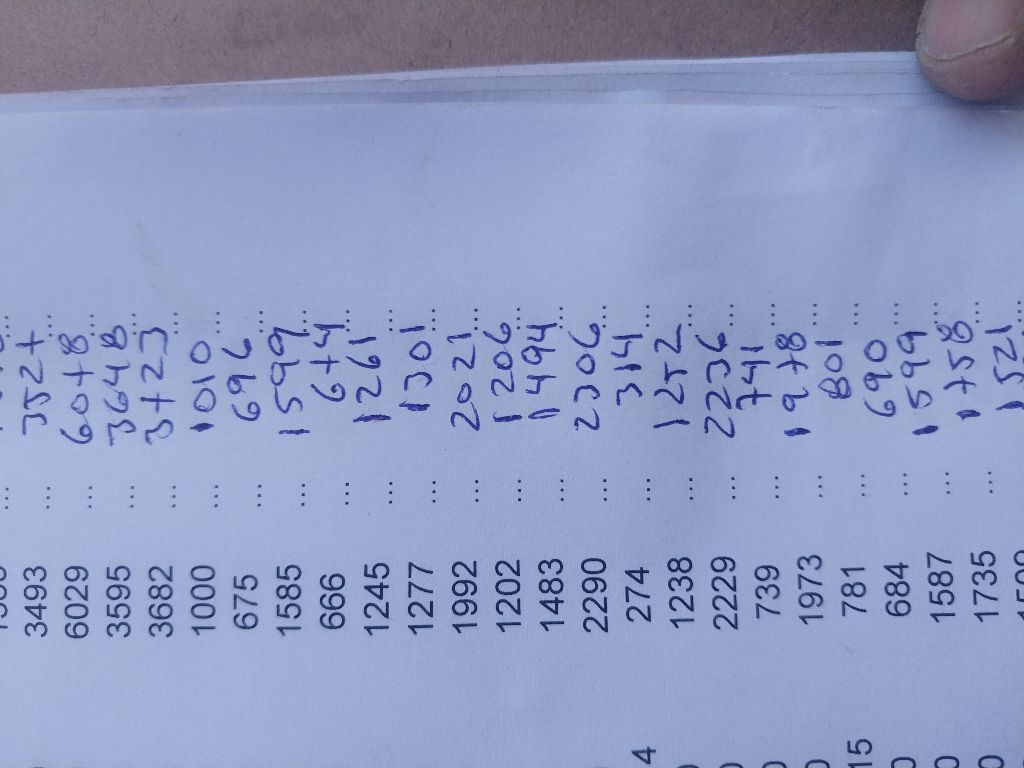 3493 ... 3527 ...
6029 ... 6078 ...
3595 ... 3648 ...
3682 ... 3723 ...
1000 ... 1010 ...
675 ... 696 ...
1585 ... 1599 ...
666 ... 674 ...
1245 ... 1261 ...
1277 ... 1301 ...
1992 ... 2021 ...
1202 ... 1206 ...
1483 ... 1494 ...
2290 ... 2306 ...
4 274 ... 314 ...
0 1238 ... 1252 ...
0 2229 ... 2236 ...
0 739 ... 741 ...
0 1973 ... 1978 ...
15 781 ... 801 ...
0 684 ... 690 ...
0 1587 ... 1599 ...
0 1735 ... 1758 ...
1521